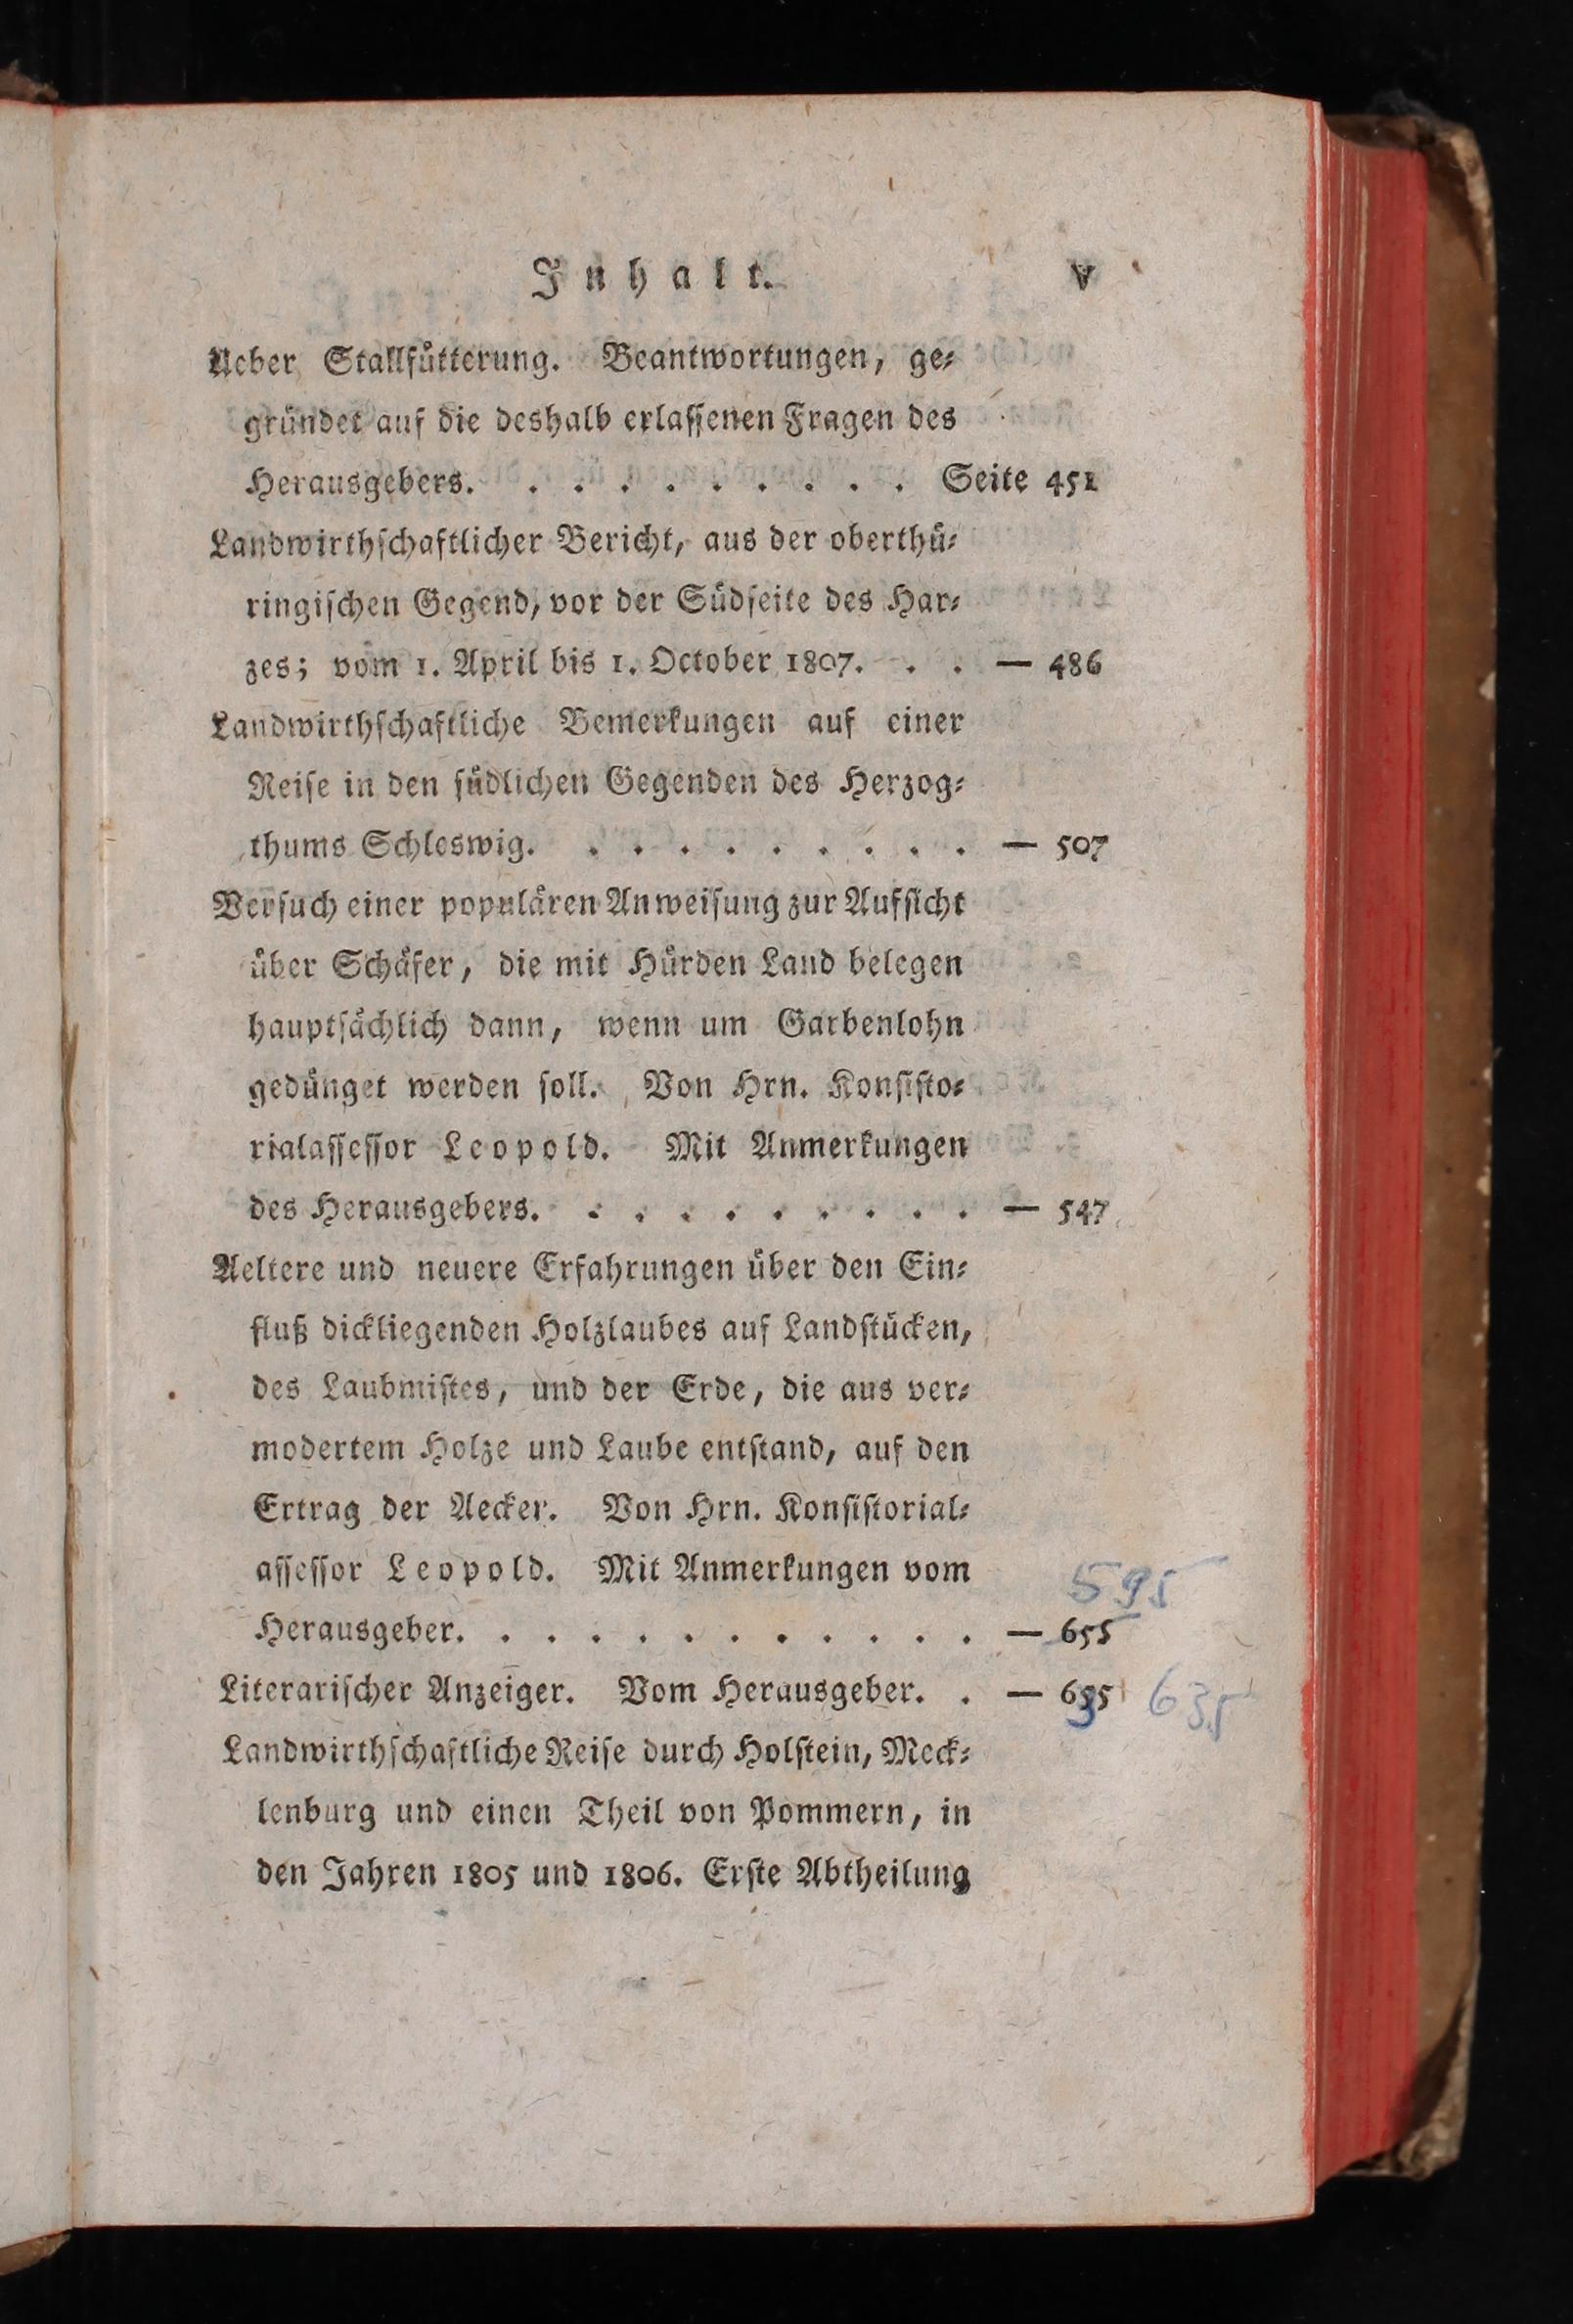 Inhalt. V
Ueber Stallfütterung. Beantwortungen, ge⸗
gründet auf die deshalb erlassenen Fragen des
Herausgebers. . . . . . . . . . Seite 451
Landwirthschaftlicher Bericht, aus der oberthü⸗
ringischen Gegend, vor der Südseite des Har⸗
zes; vom 1. April bis 1. October 1807. . . — 486
Landwirthschaftliche Bemerkungen auf einer
Reise in den südlichen Gegenden des Herzog⸗
thums Schleswig. . . . . . . . . . — 507
Versuch einer populären Anweisung zur Aufsicht
über Schäfer, die mit Hürden Land belegen
hauptsächlich dann, wenn um Garbenlohn
gedünget werden soll. Von Hrn. Konsisto⸗
rialassessor Leopold. Mit Anmerkungen
des Herausgebers. . . . . . . . . . — 547
Aeltere und neuere Erfahrungen über den Ein⸗
fluß dickliegenden Holzlaubes auf Landstücken,
des Laubmistes, und der Erde, die aus ver⸗
modertem Holze und Laube entstand, auf den
Ertrag der Aecker. Von Hrn. Konsistorial⸗
assessor Leopold. Mit Anmerkungen vom
595
Herausgeber. . . . . . . . . . . . — 655
Literarischer Anzeiger. Vom Herausgeber. . — 635 635
Landwirthschaftliche Reise durch Holstein, Meck⸗
lenburg und einen Theil von Pommern, in
den Jahren 1805 und 1806. Erste Abtheilung